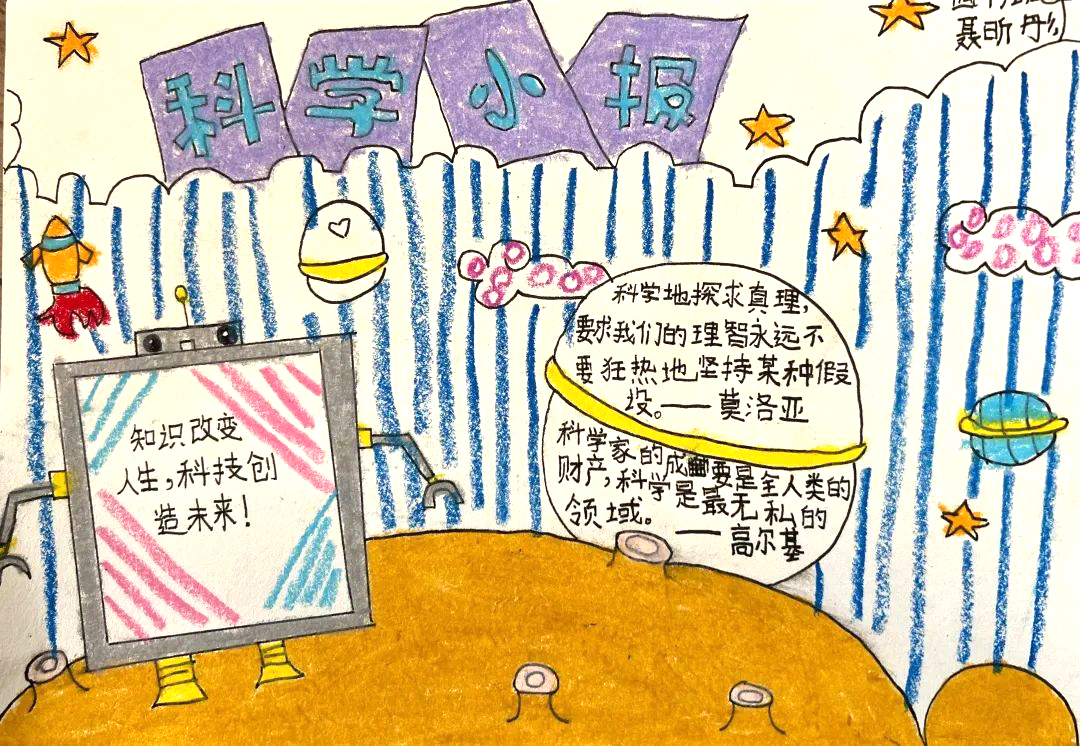 科学小报
聂昕彤
知识改变
人生，科技创
造未来！
科学地探求真理，
要求我们的理智永远不
要狂热地坚持某种假
设。——莫洛亚
科学家的成要是全人类的
财产，科学是最无私的
领域。
——高尔基